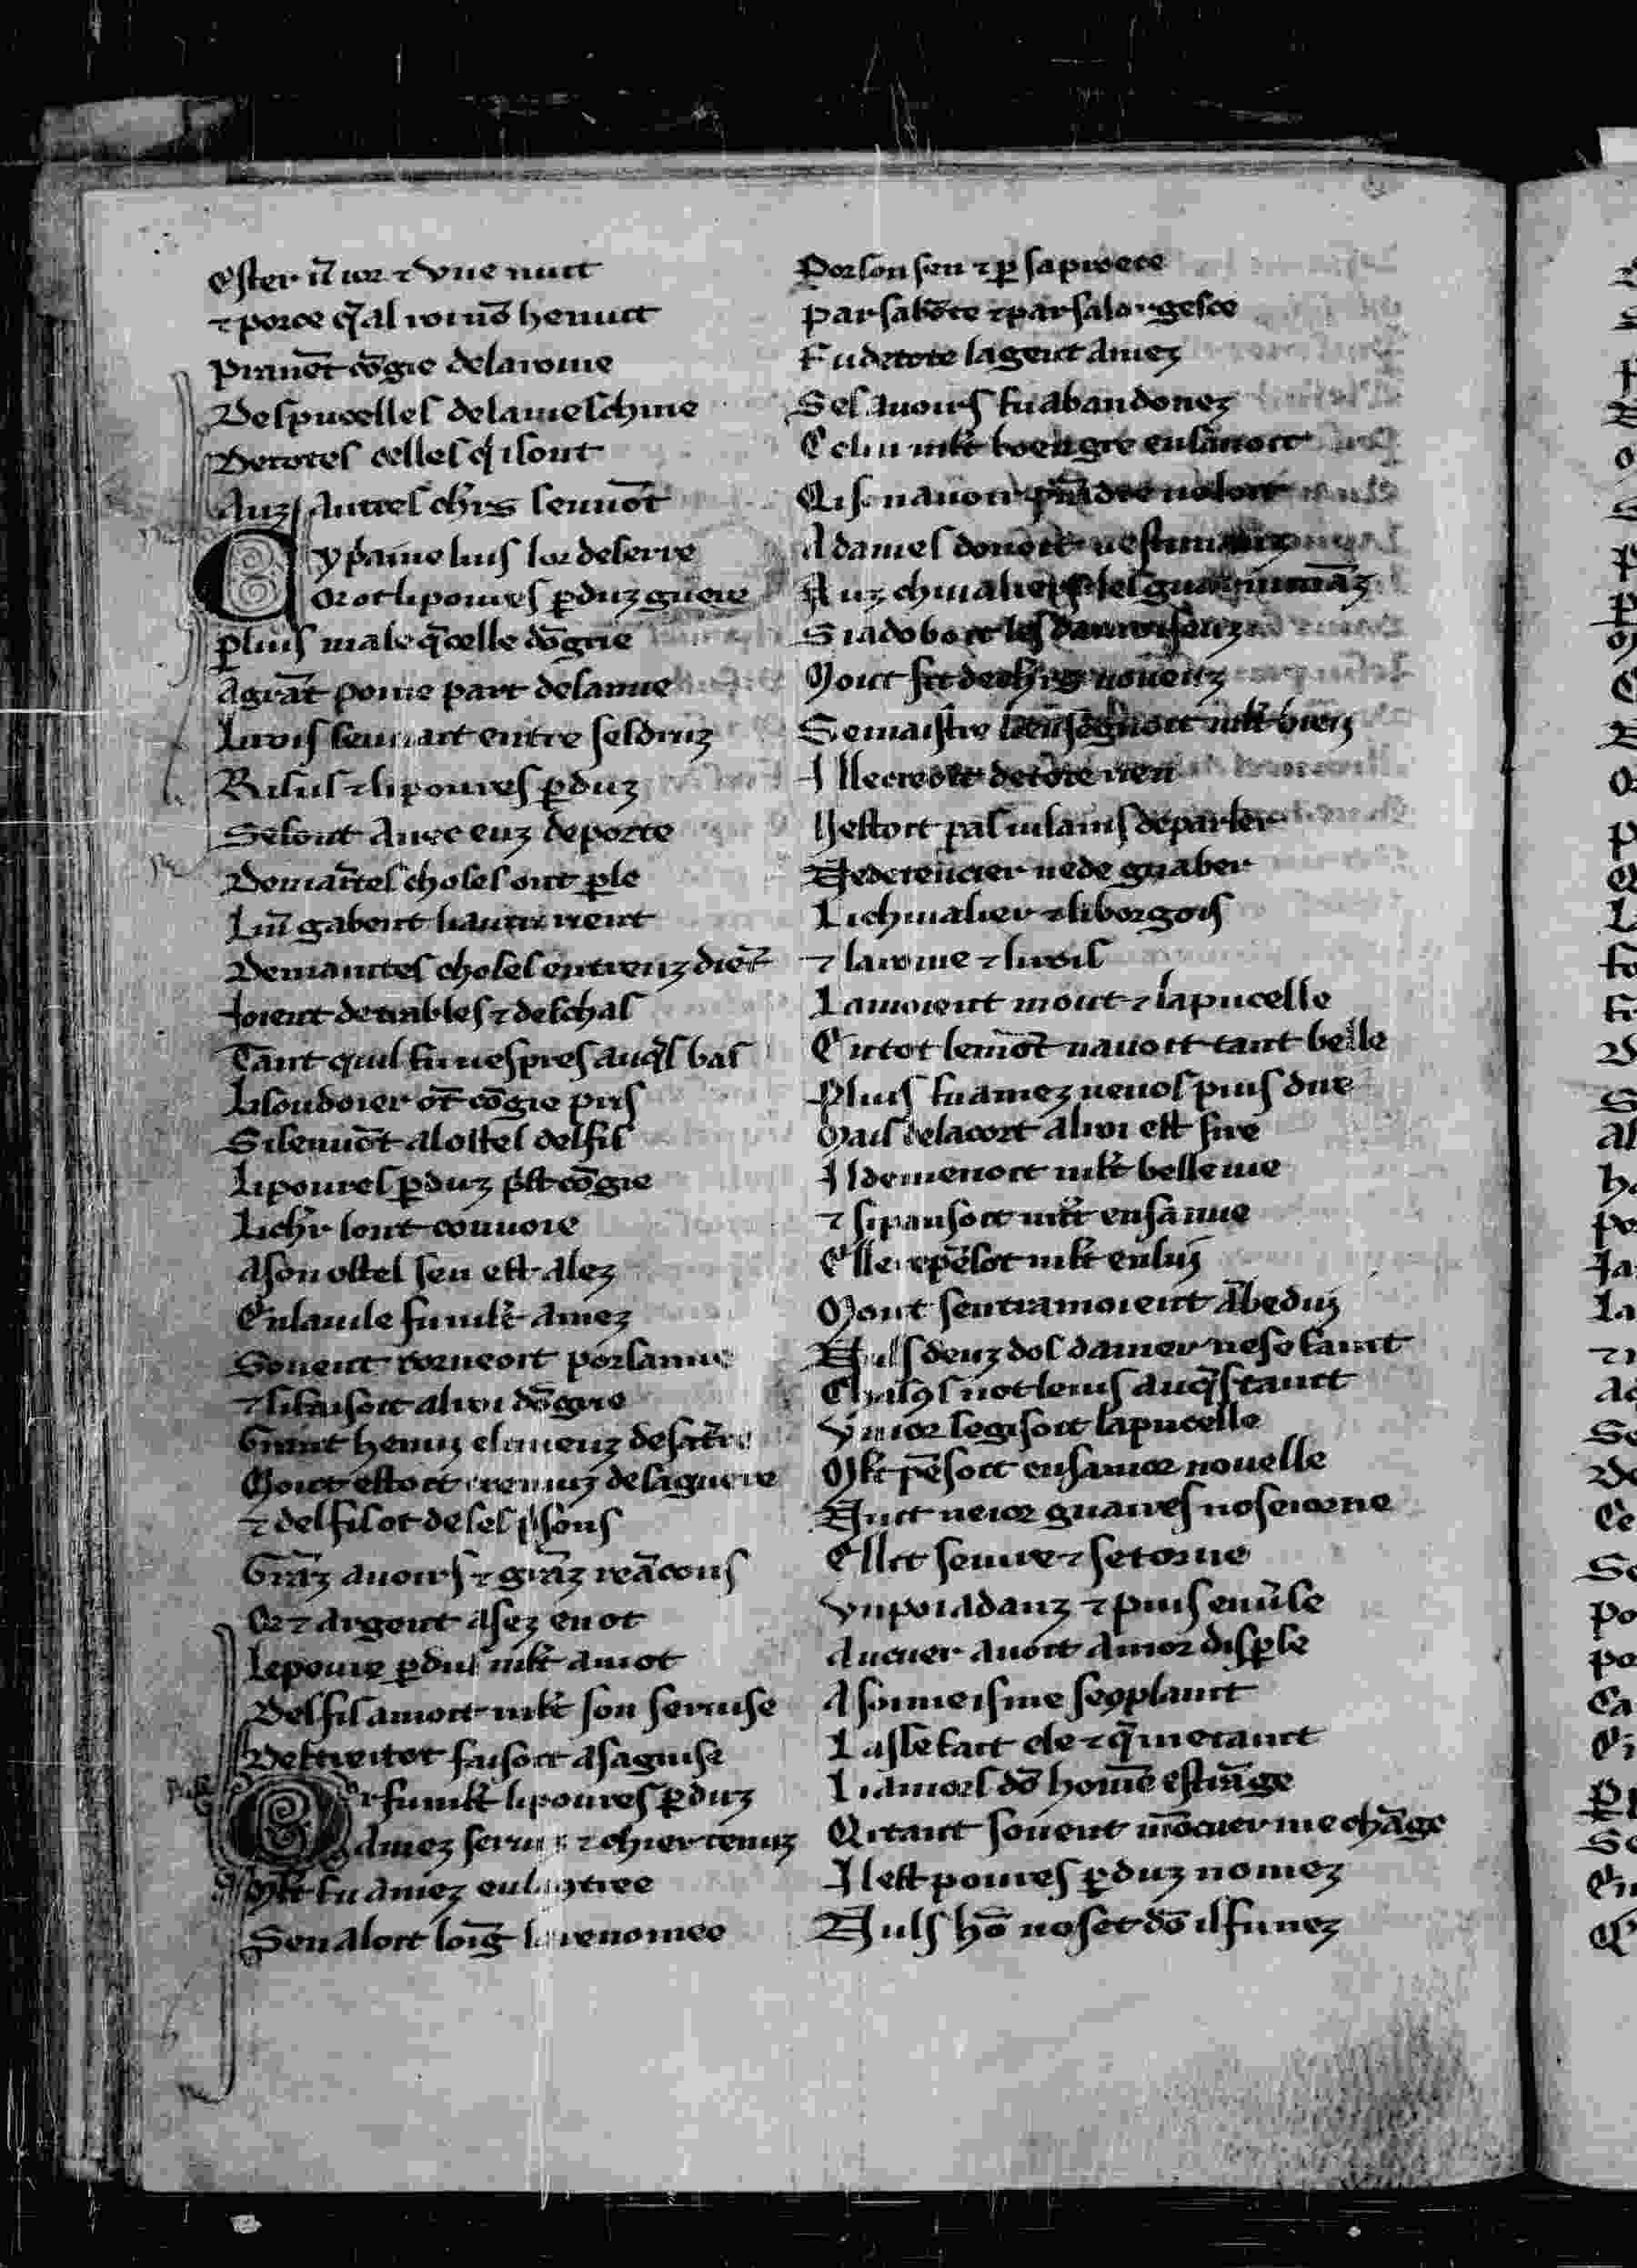 Ester .i. ior ⁊ vne nuit
⁊ porce q̃ al roi nõ henuit
Prãnẽt cõgie de la roine
Des pucelles de la meschine
De totes celles q̃ i sont
Auz autres chr̃s sen uõt
C y paine luis lor deserre
Or ot li poures ꝑduz guere
Plus male q̃ celle dõgrie
A grãt poine part de samie
Li rois sen uait entre ses druz
Rusus ⁊ li poures ꝑduz
Se sont auec euz deporte
De maĩtes choses ont ꝑle
Li .i. gabent li autre rient
De maintes choses entreuz diẽt
Ioient de tables ⁊ deschas
Tant quil fu uespres auq̃s bas
Li soudoier õt cõgie pris
Si sen uõt a lostel de fis
Li poures ꝑduz pst cõgie
Li chr̃ lont conuoie
A son ostel sen est alez
En la uile fu mlt̃ amez
Souent torneoit por samie
⁊ si faisoit al roi dõgrie
Grant henui el mienz de sa tr̃e
Mout estoit cremuz de la guere
⁊ de fis ot de ses psons
Grãz auoirs ⁊ grãz reãcons
Or ⁊ argent asez en ot
Le poure ꝑdu mlt̃ amot
De fis amoit mlt̃ son seruise
Del treitot faisoit a sa guise
O r fu mlt̃ li poures ꝑduz
Amez seruiz ⁊ chier tenuz
Mlt̃ fu amez en la gtree
Sen aloit loĩg la renomee
Por son sen ⁊ ꝑ sa proece
Par sa bõte ⁊ par sa largesce
Fu de tote la gent amez
Ses auoirs fu abandonez
Celui mlt̃ boen gre en sauoit
Qi son auoir prãdre uoloit
A dames donoit uestimanz
Auz cheualiers les guarnimãz
Si adoboit les damoiseuz
Mout fit de chr̃s noueuz
Se maistre len segnoit mlt̃ bien
Il lecreoit de tote rien
Nestoit pas uilains de parler
Ne de tencier ne de guaber
Li chiualier ⁊ li borgois
⁊ la roine ⁊ li rois
Lamoient mout ⁊ la pucelle
En tot le mõt nauoit tant belle
Plus fu amez ne uos puis dire
Mais de la cort al roi est sire
Il demenoit mlt̃ belle uie
⁊ si pansoit mlt̃ en samie
Elle repẽsot mlt̃ en lui
Mout sentramoient ãbedui
Nuls deuz dos damer ne se faint
Chascꝯs not lenis auq̃s taint
Vn ior se gisoit la pucelle
Mlt̃ pẽsoit en samor nouelle
Nuit ne ior guaires no seiorne
El lit se uire ⁊ se torne
Vn poi a danz ⁊ puis en ũse
Au cuer auoit amor dispse
A soi meisme se gplaint
Lasse fait ele ⁊ q̃ me taint
Li amors dõ home estrãge
Qi tant souent mõ cuer me chãge
Il est poures ꝑduz nomez
Nuls hõ no set dõ il fu nez